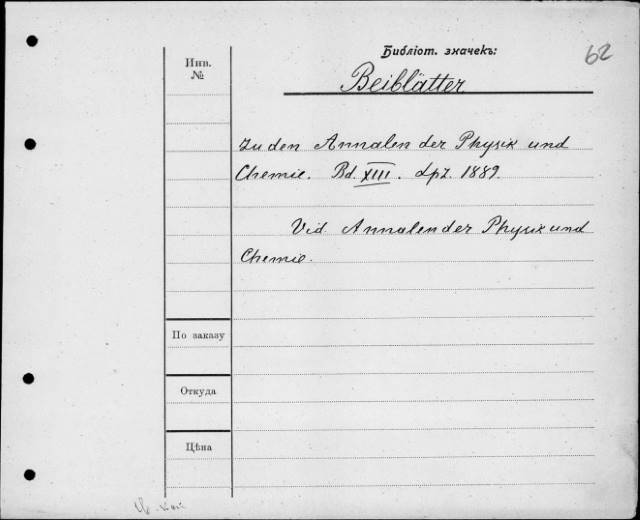 Библіот. значекъ:
62
Инв.
№
Beiblätter
zu den Annalen der Physik und
Chemie. Bd. XIII. Lpz. 1889.
Vid. Annalen der Physik und
Chemie.
По заказу
Откуда
Цѣна